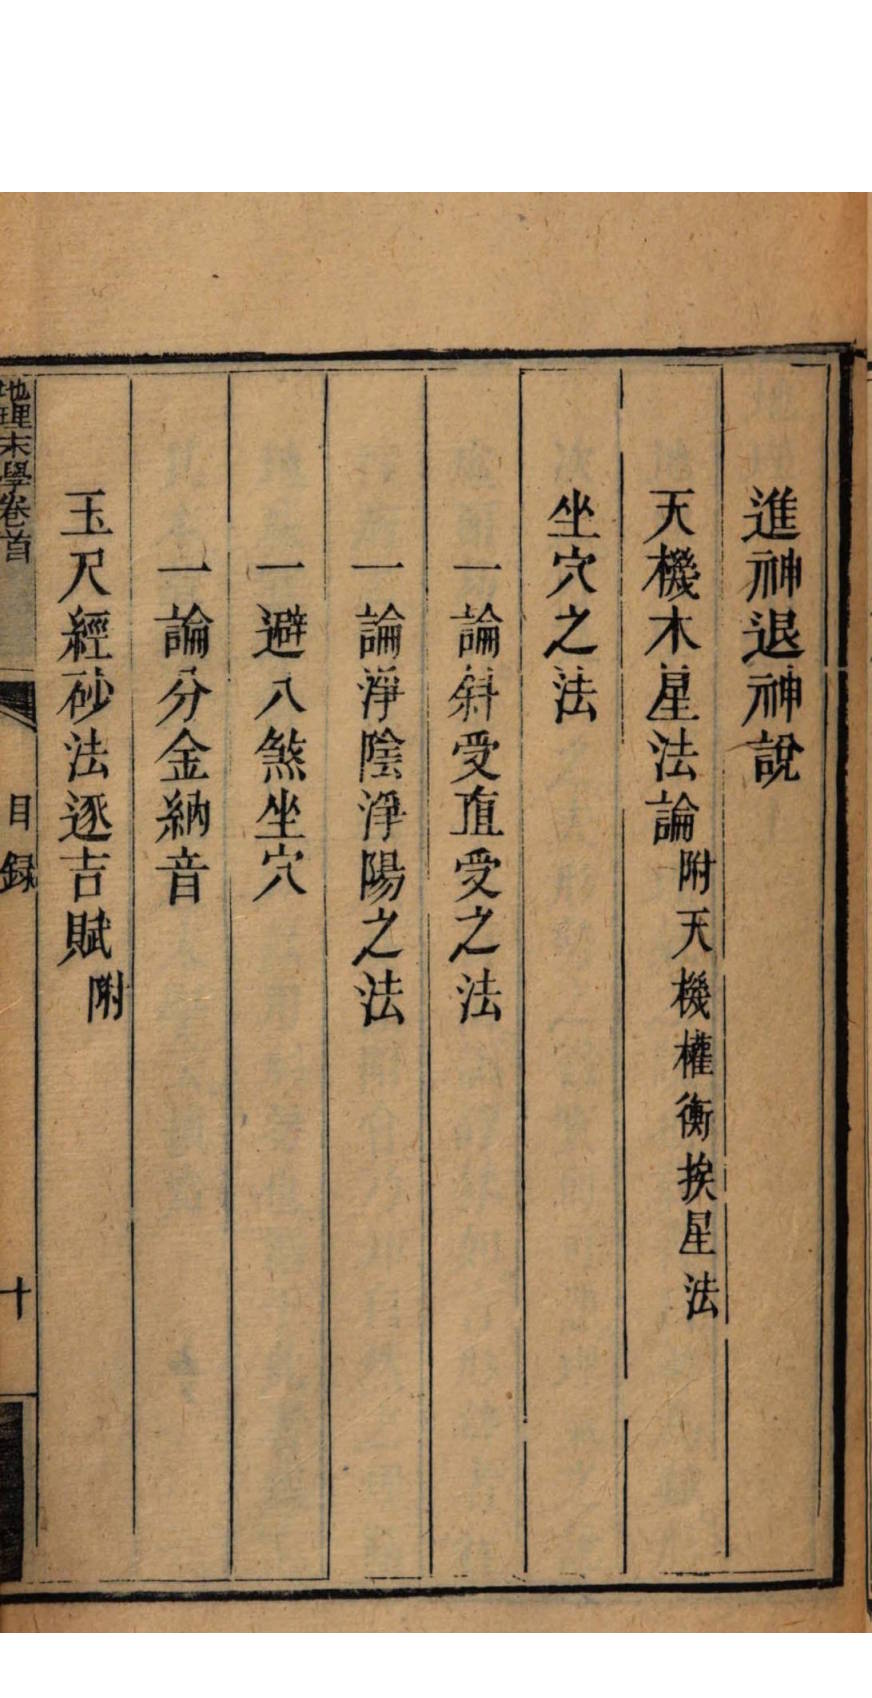 進神退神說
天機木星法論附天機權衡挨星法
坐穴之法
一論斜受直受之法
一論淨陰淨陽之法
一避八煞坐穴
一論分金納音
玉尺經砂法逐吉賦附
地理末學卷首
目録
十